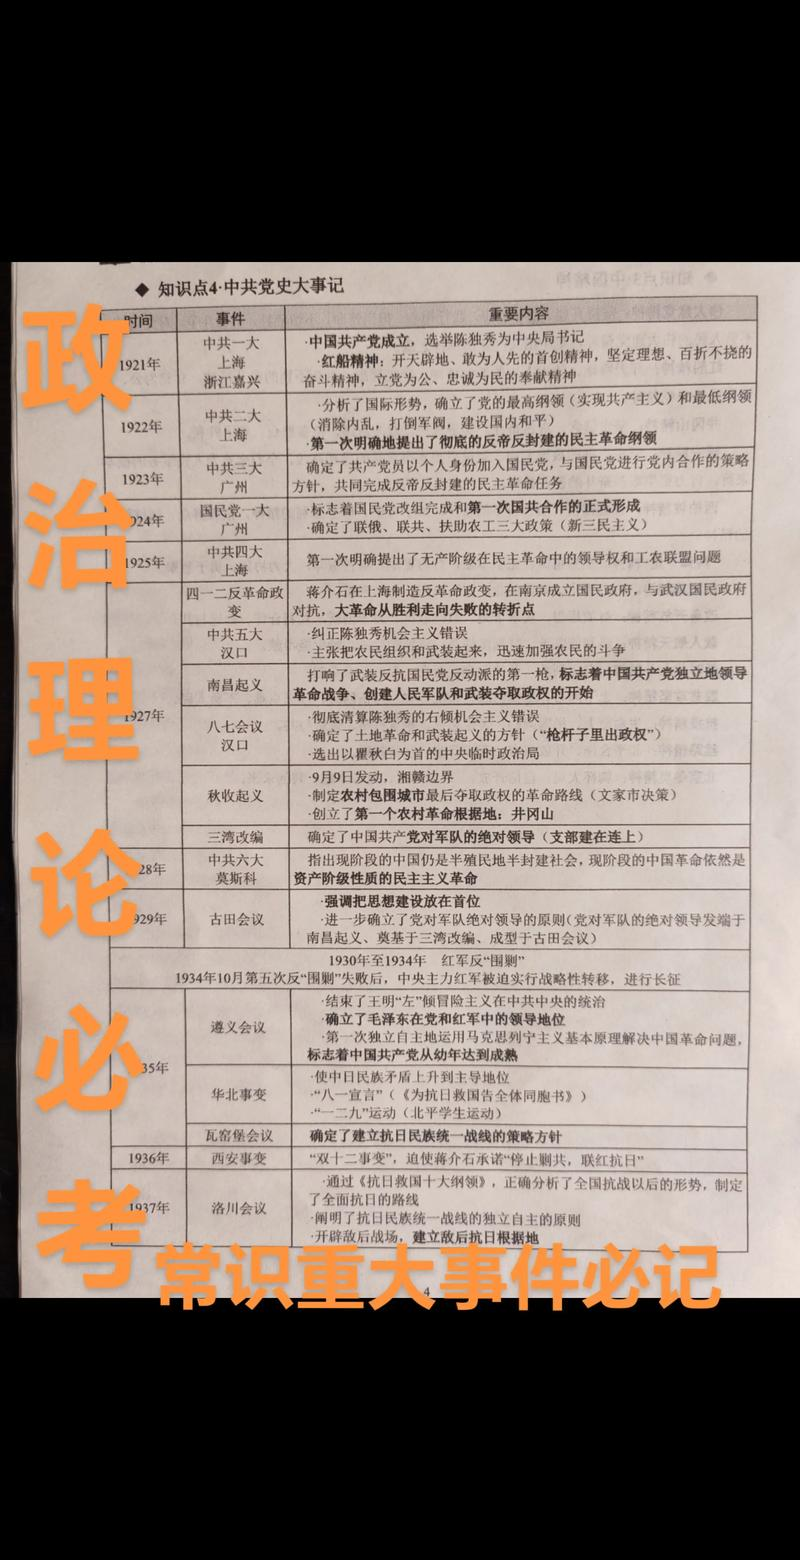 ◆ 知识点4·中共党史大事记
时间 事件 重要内容
1921年
中共一大
上海
浙江嘉兴
·中国共产党成立，选举陈独秀为中央局书记
·红船精神：开天辟地、敢为人先的首创精神，坚定理想、百折不挠的
奋斗精神，立党为公、忠诚为民的奉献精神
1922年
中共二大
上海
·分析了国际形势，确立了党的最高纲领（实现共产主义）和最低纲领
（消除内乱，打倒军阀，建设国内和平）
·第一次明确地提出了彻底的反帝反封建的民主革命纲领
1923年
中共三大
广州
确定了共产党员以个人身份加入国民党，与国民党进行党内合作的策略
方针，共同完成反帝反封建的民主革命任务
924年
国民党一大
广州
·标志着国民党改组完成和第一次国共合作的正式形成
·确定了联俄、联共、扶助农工三大政策（新三民主义）
1925年
中共四大
上海
第一次明确提出了无产阶级在民主革命中的领导权和工农联盟问题
1927年
四一二反革命政
变
蒋介石在上海制造反革命政变，在南京成立国民政府，与武汉国民政府
对抗，大革命从胜利走向失败的转折点
中共五大
汉口
·纠正陈独秀机会主义错误
·主张把农民组织和武装起来，迅速加强农民的斗争
南昌起义
打响了武装反抗国民党反动派的第一枪，标志着中国共产党独立地领导
革命战争、创建人民军队和武装夺取政权的开始
八七会议
汉口
·彻底清算陈独秀的右倾机会主义错误
·确定了土地革命和武装起义的方针（“枪杆子里出政权”）
·选出以瞿秋白为首的中央临时政治局
秋收起义
·9月9日发动，湘赣边界
·制定农村包围城市最后夺取政权的革命路线（文家市决策）
·创立了第一个农村革命根据地：井冈山
三湾改编
确定了中国共产党对军队的绝对领导（支部建在连上）
28年
中共六大
莫斯科
指出现阶段的中国仍是半殖民地半封建社会，现阶段的中国革命依然是
资产阶级性质的民主主义革命
929年
古田会议
·强调把思想建设放在首位
·进一步确立了党对军队绝对领导的原则（党对军队的绝对领导发端于
南昌起义、奠基于三湾改编、成型于古田会议）
1930年至1934年 红军反“围剿”
1934年10月第五次反“围剿”失败后，中央主力红军被迫实行战略性转移，进行长征
35年
遵义会议
·结束了王明“左”倾冒险主义在中共中央的统治
·确立了毛泽东在党和红军中的领导地位
·第一次独立自主地运用马克思列宁主义基本原理解决中国革命问题，
标志着中国共产党从幼年达到成熟
华北事变
·使中日民族矛盾上升到主导地位
·“八一宣言”（《为抗日救国告全体同胞书》）
·“一二九”运动（北平学生运动）
瓦窑堡会议
确定了建立抗日民族统一战线的策略方针
1936年
西安事变
“双十二事变”，迫使蒋介石承诺“停止剿共，联红抗日”
1937年
洛川会议
·通过《抗日救国十大纲领》，正确分析了全国抗战以后的形势，制定
了全面抗日的路线
·阐明了抗日民族统一战线的独立自主的原则
·开辟敌后战场，建立敌后抗日根据地
4
政
治
理
论
必
考
常识重大事件必记